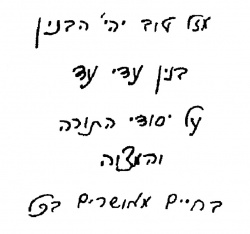 מזל טוב יהי' הבנין
בנין עדי עד
על יסודי התורה
והמצוה
בחיים מאושרים בכל